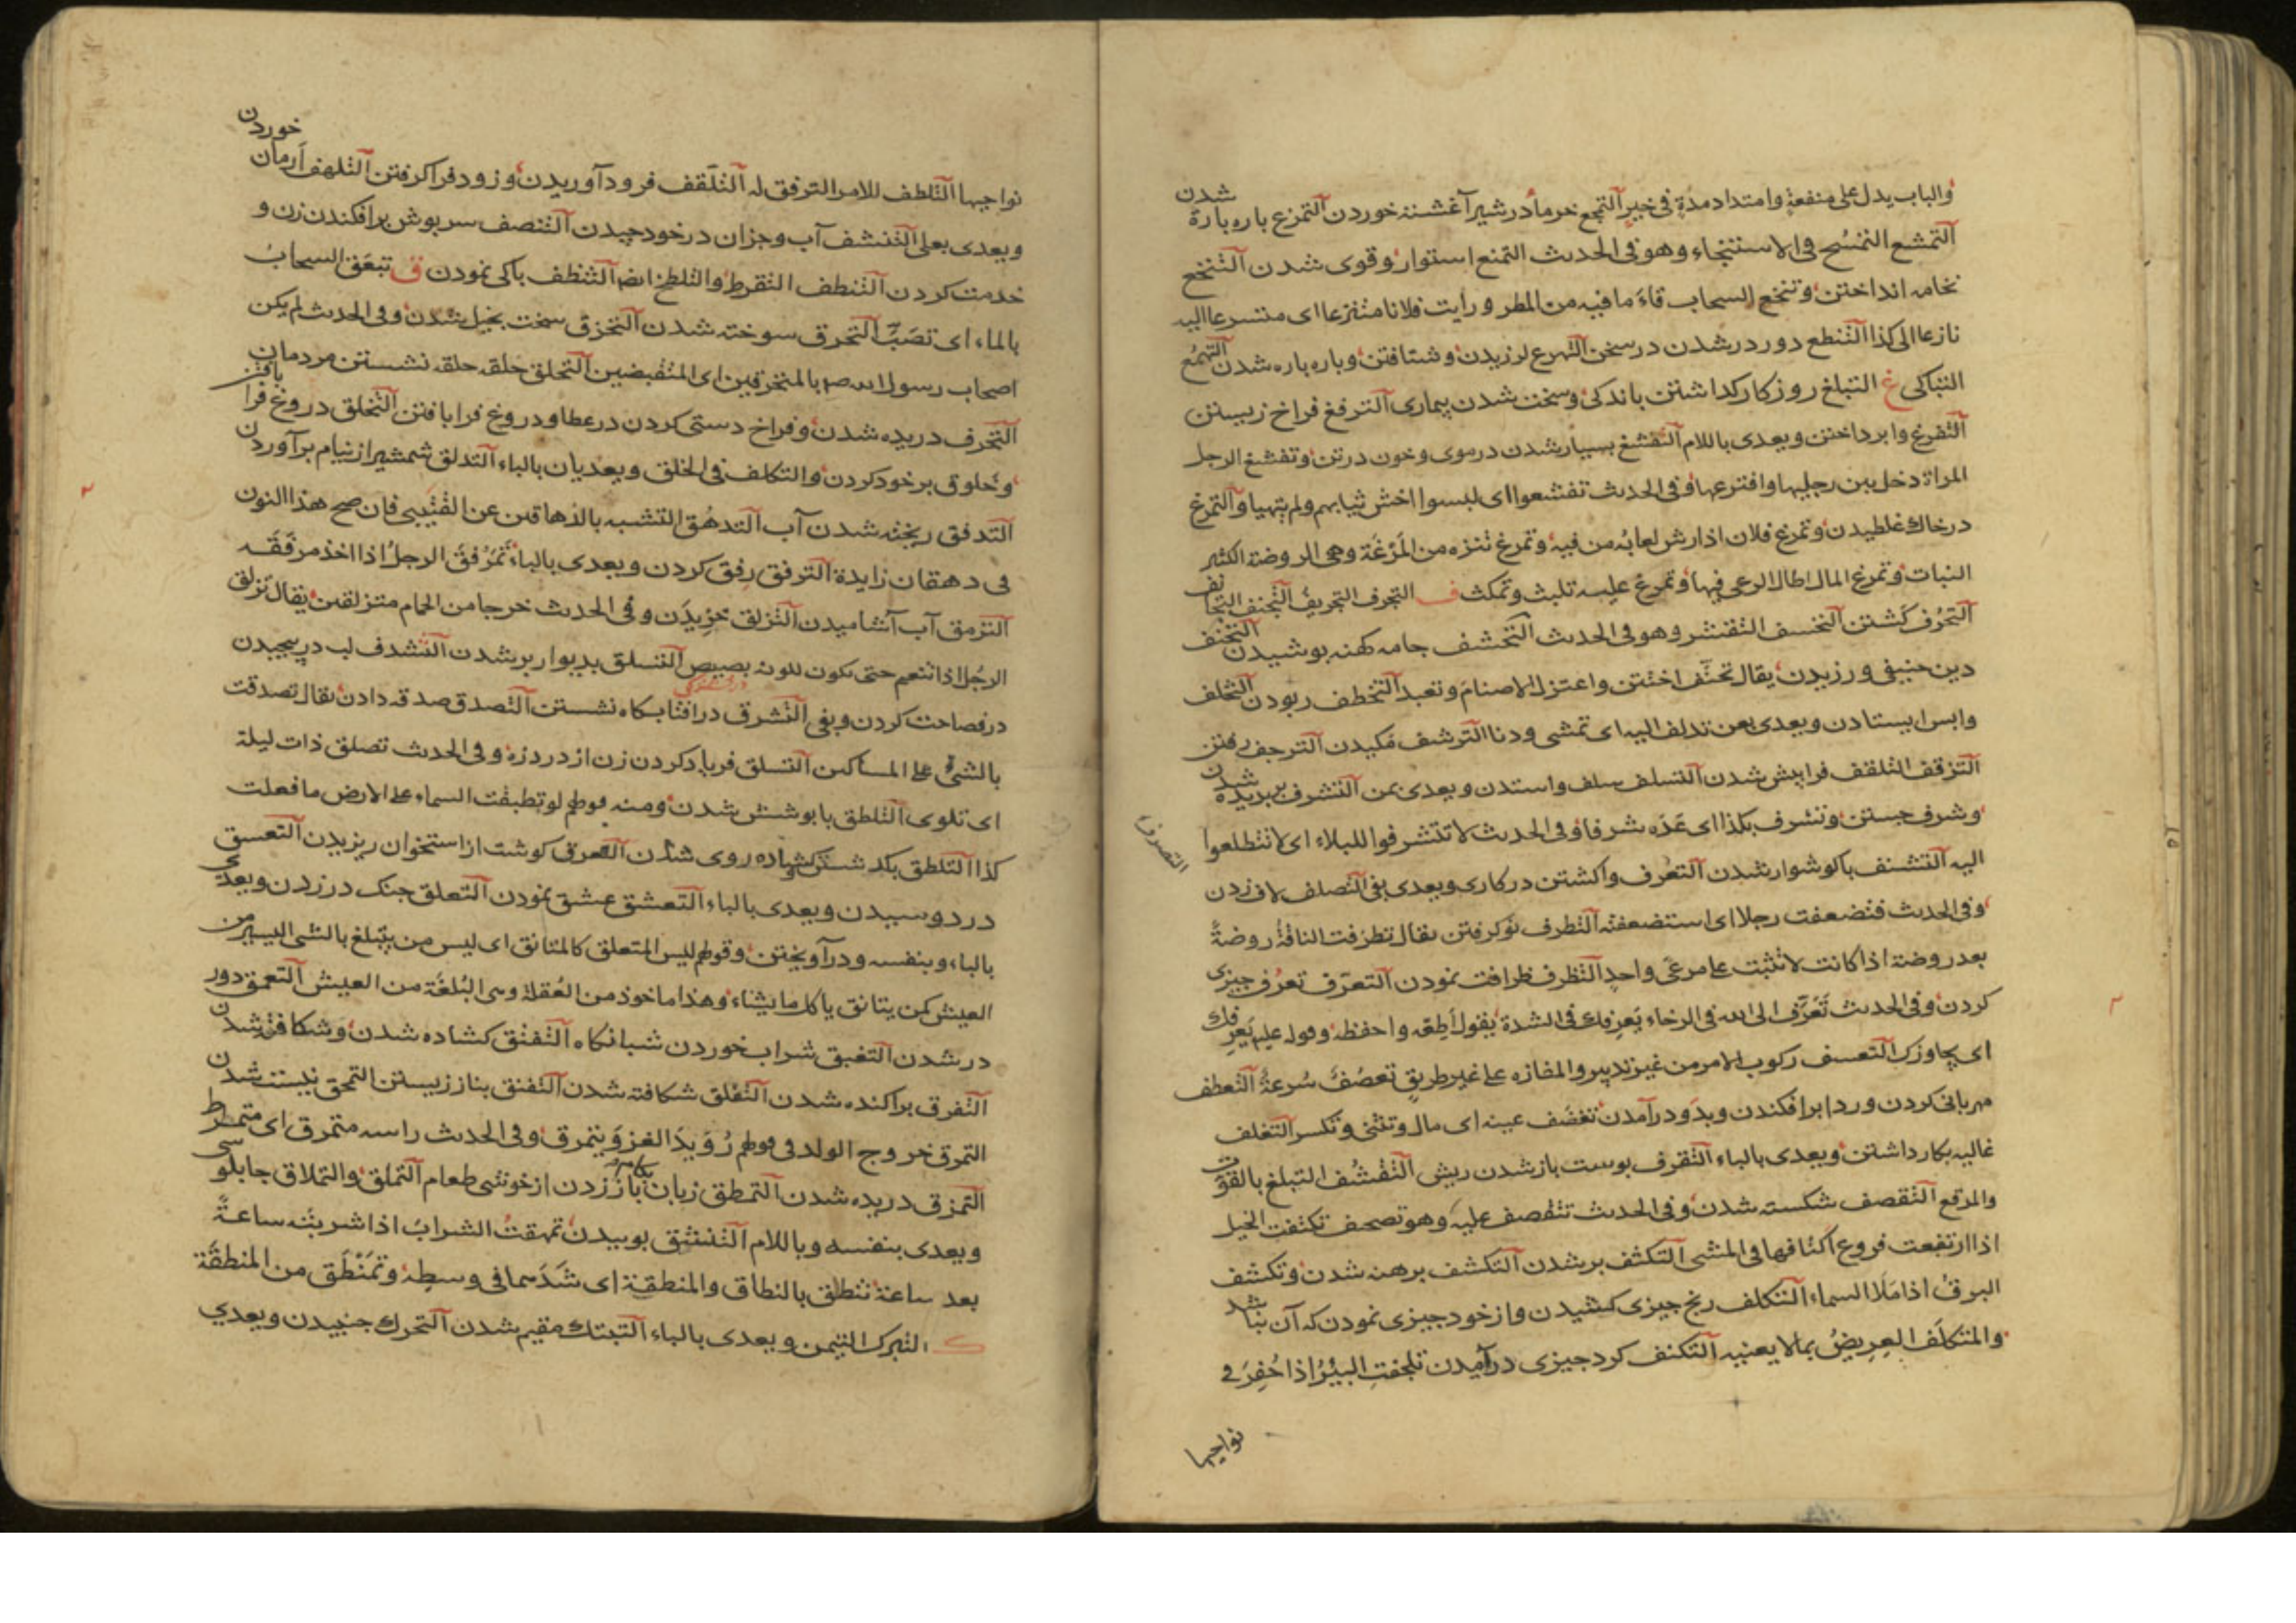 والباب يدل على منفعة وامتداد مدة في خير التمجع خرما در شير آغشته خوردن التمزع باره بارة شدن
التمشع التمسح في الاستنجاء وهو في الحديث التمنع استوار وقوى شدن التنخع
نخامه انداختن وتنخع السحاب قاء ما فيه من المطر ورأيت فلانا متنزعا اى متسرعا اليه
نازعا الى كذا التنطع دور در شدن در سخن التهرع لرزيدن وشتافتن وباره باره شدن التهمع
التباكى غ التبلغ روزكار كداشتن باندكى وسخت شدن بيمارى الترفغ فراخ زيستن
التفرغ وابرداختن ويعدى باللام التفشغ بسيار شدن در موى وخون در تن وتفشغ الرجل
المراة دخل بين رجليها وافترعها وفي الحديث تفشغوا اى لبسوا اخشن ثيابهم ولم يتهياو التمرغ
در خاك غلطيدن وتمرغ فلان اذا رش لعابه من فيه وتمرغ تنزه من المرغة وهي الروضة الكثير
النبات وتمرغ المال اطال الرعى فيها وتمرغ عليه تلبث وتمكث ف التجرف التجريف التجنف التجانف
التحرف كشتن التخسف التقشر وهو في الحديث التخشف جامه كهنه بوشيدن التحنف
دين حنيفى ورزيدن يقال تحنف اختتن واعتزل الاصنام وتعبد التخطف ربودن التخلف
وابس ايستادن ويعدى بعن تدلف اليه اى تمشى ودنا الترشف مكيدن الترجف
التزقف التلقف فرابيش شدن التسلف سلف واستدن ويعدى بمن التشرف بر بريده شدن
وشرف جستن وتشرف بكذا اى عده شرفا وفي الحديث لا تتشرفوا للبلاء اى لا تتطلعوا
اليه التشنف باكوشوار شدن التعرف واكشتن در كارى ويعدى بفى التصلف لاف زدن
التصرف
وفي الحديث فتضعفت رجلا اى استضعفته التطرف نوكرفتن يقال تطرفت الناقة روضة
بعد روضة اذا كانت لا تثبت على مرعى واحد التظرف ظرافت نمودن التعرف تعرف جيزى
كردن وفي الحديث تعرف الى الله في الرخاء يعرفك في الشدة يقول أطعه واحفظه وقوله عليه يعرفك
اى يجاوزك التعسف ركوب الامر من غير تدبير والمفازه على غير طريق تعصف سرعة التعطف
مهربانى كردن وردا برافكندن وبدو درآمدن تغضف عينه اى مال وتثنى وتكسر التغلف
غاليه بكار داشتن ويعدى بالباء التقرف بوست باز شدن ريش التقشف التبلغ بالقوت
والمرقع التقصف شكسته شدن وفي الحديث تتقصف عليه وهو تصحف تكتفت الخيل
اذا ارتفعت فروع اكتافها في المشى التكثف بر شدن التكشف برهنه شدن وتكشف
البرق اذا ملا السماء التكلف رنج جيزى كشيدن واز خود جيزى نمودن كه آن نباشد
والمتكلف العريض بما لا يعنيه التكنف كرد جيزى درآمدن تلجفت البئر اذا حفر في
نواحيها
نواحيها التلطف للامر الترفق له التلقف فرود آوريدن وزود فراكرفتن التلهف ارمان خوردن
ويعدى بعلى التنشف آب وجزان در خود جيدن التنصف سربوش برافكندن زن و
خدمت كردن التنطف التقرط والتلطخ ايضا التنظف باكى نمودن ق تبعق السحاب
بالماء اى تصبب التحرق سوخته شدن التحزق سخت بخيل شدن وفي الحديث لم يكن
اصحاب رسول الله صم بالمتحزقين اى المتقبضين التحلق حلقه حلقه نشستن مردمان
التخرف دريده شدن وفراخ دستى كردن در عطا ودروغ فرا بافتن التخلق دروغ فرا بافتن
وخلوق بر خود كردن والتكلف في الخلق ويعديان بالباء التدلق شمشير از نيام برآوردن
التدفق ريخته شدن آب التدهق التشبه بالدهاقين عن القتيبى فان صح هذا النون
في دهقان زايدة الترفق رفق كردن ويعدى بالباء تمرفق الرجل اذا اخذ مرفقه
الترمق آب آشاميدن التزلق خزيدن وفي الحديث خرجا من الحمام متزلقين يقال تزلق
الرجل اذا تنعم حتى يكون للونه بصيص التسلق بديوار بر شدن التشدف لب در بيجيدن
در فصاحت كردن وبفى التشرق در افتابكاه نشستن التصدق صدقه دادن يقال تصدقت
بالشئ على المساكين التسلق فرياد كردن زن از درد زه وفي الحديث تصلق ذات ليلة
اى تلوى التلطق بابوشش شدن ومنه قولهم لو تطبقت السماء على الارض ما فعلت
كذا التلطق كشاده روى شدن التعرق كوشت از استخوان ريزيدن التعسق
در دوسيدن ويعدى بالباء التعشق عشق نمودن التعلق جنك در زدن ويعدى
بالباء وبنفسه ودرآويختن وقولهم ليس المتعلق كالمتانق اى ليس من يتبلغ بالشى اليسير من
العيش كمن يتانق ياكل ما يشاء وهذا ماخوذ من العلقة وهى البلغة من العيش التعمق دور
در شدن التغبق شراب خوردن شبانكاه التفتق كشاده شدن وشكافته شدن
التفرق براكنده شدن التفلق شكافته شدن التفنق بناز زيستن التمحق نيست شدن
التمرق خروج الولد في قولهم رويد الغزو ينمرق وفي الحديث راسه متمرق اى متمرط
التمزق دريده شدن التمطق زبان باز زدن از خوشى طعام التملق والتملاق جابلوسى
ويعدى بنفسه وباللام التنشق بوييدن تمهقت الشراب اذا شربته ساعة
بعد ساعة تنطق بالنطاق والمنطقة اى شدهما في وسطه وتمنطق من المنطقة
ك التبرك التيمن ويعدى بالباء التبتك مقيم شدن التحرك جنبيدن ويعدي